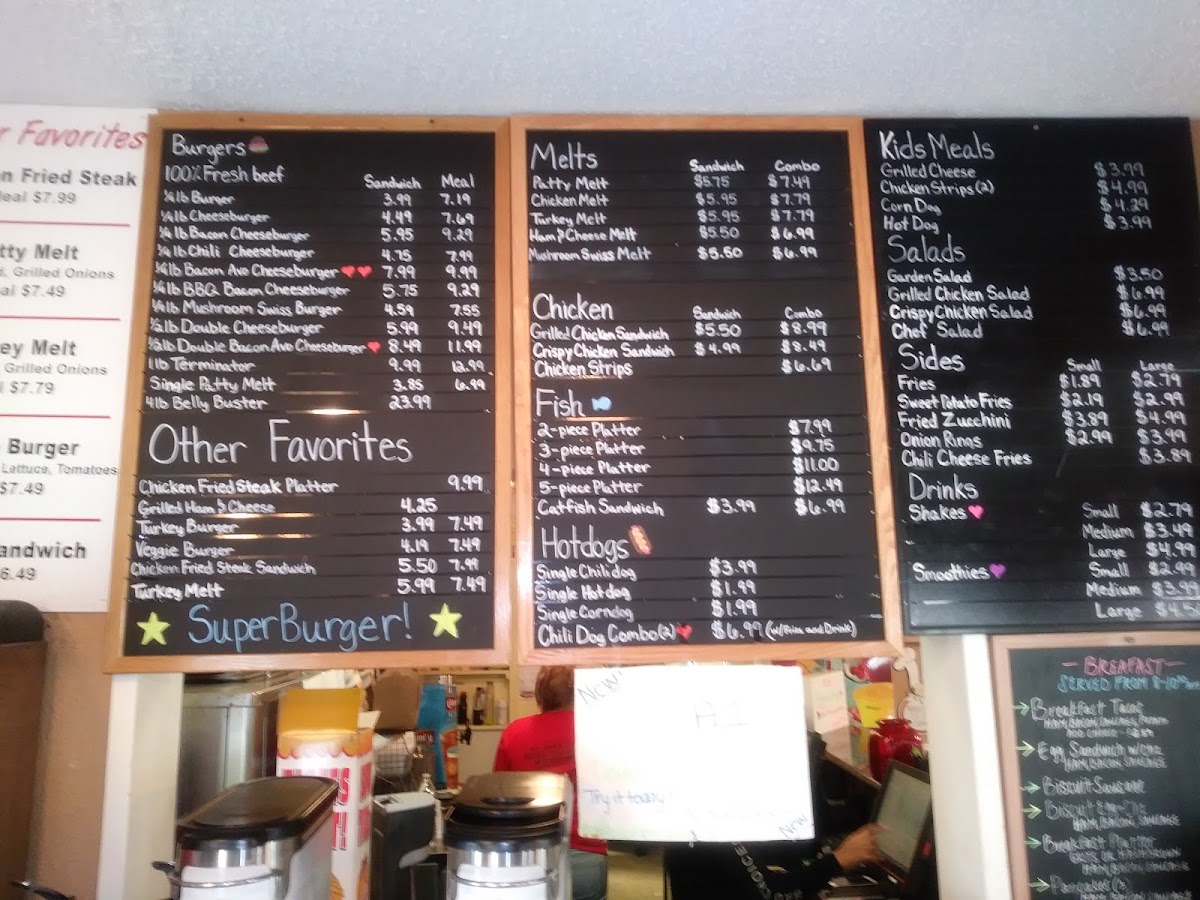 r Favorites
n Fried Steak
eal $7.99
tty Melt
d, Grilled Onions
al $7.49
ey Melt
Grilled Onions
$7.79
Burger
Lettuce, Tomatoes
$7.49
andwich
6.49
Burgers
100% Fresh beef Sandwich Meal
¼ lb Burger 3.99 7.19
¼ lb Cheeseburger 4.49 7.69
¼ lb Bacon Cheeseburger 5.95 9.29
¼ lb Chili Cheeseburger 4.75 7.99
¼ lb Bacon Avo Cheeseburger 7.99 9.99
¼ lb BBQ Bacon Cheeseburger 5.75 9.29
¼ lb Mushroom Swiss Burger 4.59 7.55
½ lb Double Cheeseburger 5.99 9.49
½ lb Double Bacon Avo Cheeseburger 8.49 11.99
1 lb Terminator 9.99 12.99
Single Patty Melt 3.85 6.99
4 lb Belly Buster 23.99
Other Favorites
Chicken Fried Steak Platter 9.99
Grilled Ham & Cheese 4.25
Turkey Burger 3.99 7.49
Veggie Burger 4.19 7.49
Chicken Fried Steak Sandwich 5.50 7.99
Turkey Melt 5.99 7.49
SuperBurger!
Melts Sandwich Combo
Patty Melt $5.75 $7.49
Chicken Melt $5.95 $7.79
Turkey Melt $5.95 $7.79
Ham & Cheese Melt $5.50 $6.99
Mushroom Swiss Melt $5.50 $6.99
Chicken Sandwich Combo
Grilled Chicken Sandwich $5.50 $8.99
Crispy Chicken Sandwich $4.99 $8.49
Chicken Strips $6.69
Fish
2-piece Platter $7.99
3-piece Platter $9.75
4-piece Platter $11.00
5-piece Platter $12.49
Catfish Sandwich $3.99 $6.99
Hotdogs
Single Chili dog $3.99
Single Hot dog $1.99
Single Corndog $1.99
Chili Dog Combo (2) $6.99 (w/Fries and Drink)
Kids Meals
Grilled Cheese $3.99
Chicken Strips (2) $4.99
Corn Dog $4.29
Hot Dog $3.99
Salads
Garden Salad $3.50
Grilled Chicken Salad $6.99
Crispy Chicken Salad $6.99
Chef Salad $6.99
Sides Small Large
Fries $1.89 $2.79
Sweet Potato Fries $2.19 $2.99
Fried Zucchini $3.89 $4.99
Onion Rings $2.99 $3.99
Chili Cheese Fries $3.89
Drinks
Shakes Small $2.79
Medium $3.49
Large $4.99
Smoothies Small $2.99
Medium $3.99
Large $4.5
New!
A 1
Try it today!
Now
- BREAFAST -
SERVED FROM 8-10
Breakfast Taco
Egg Sandwich
HAM, BACON, SAUSAGE
Biscuit Sausage
Biscuit
HAM, BACON, SAUSAGE
Breakfast Platter
Pancakes